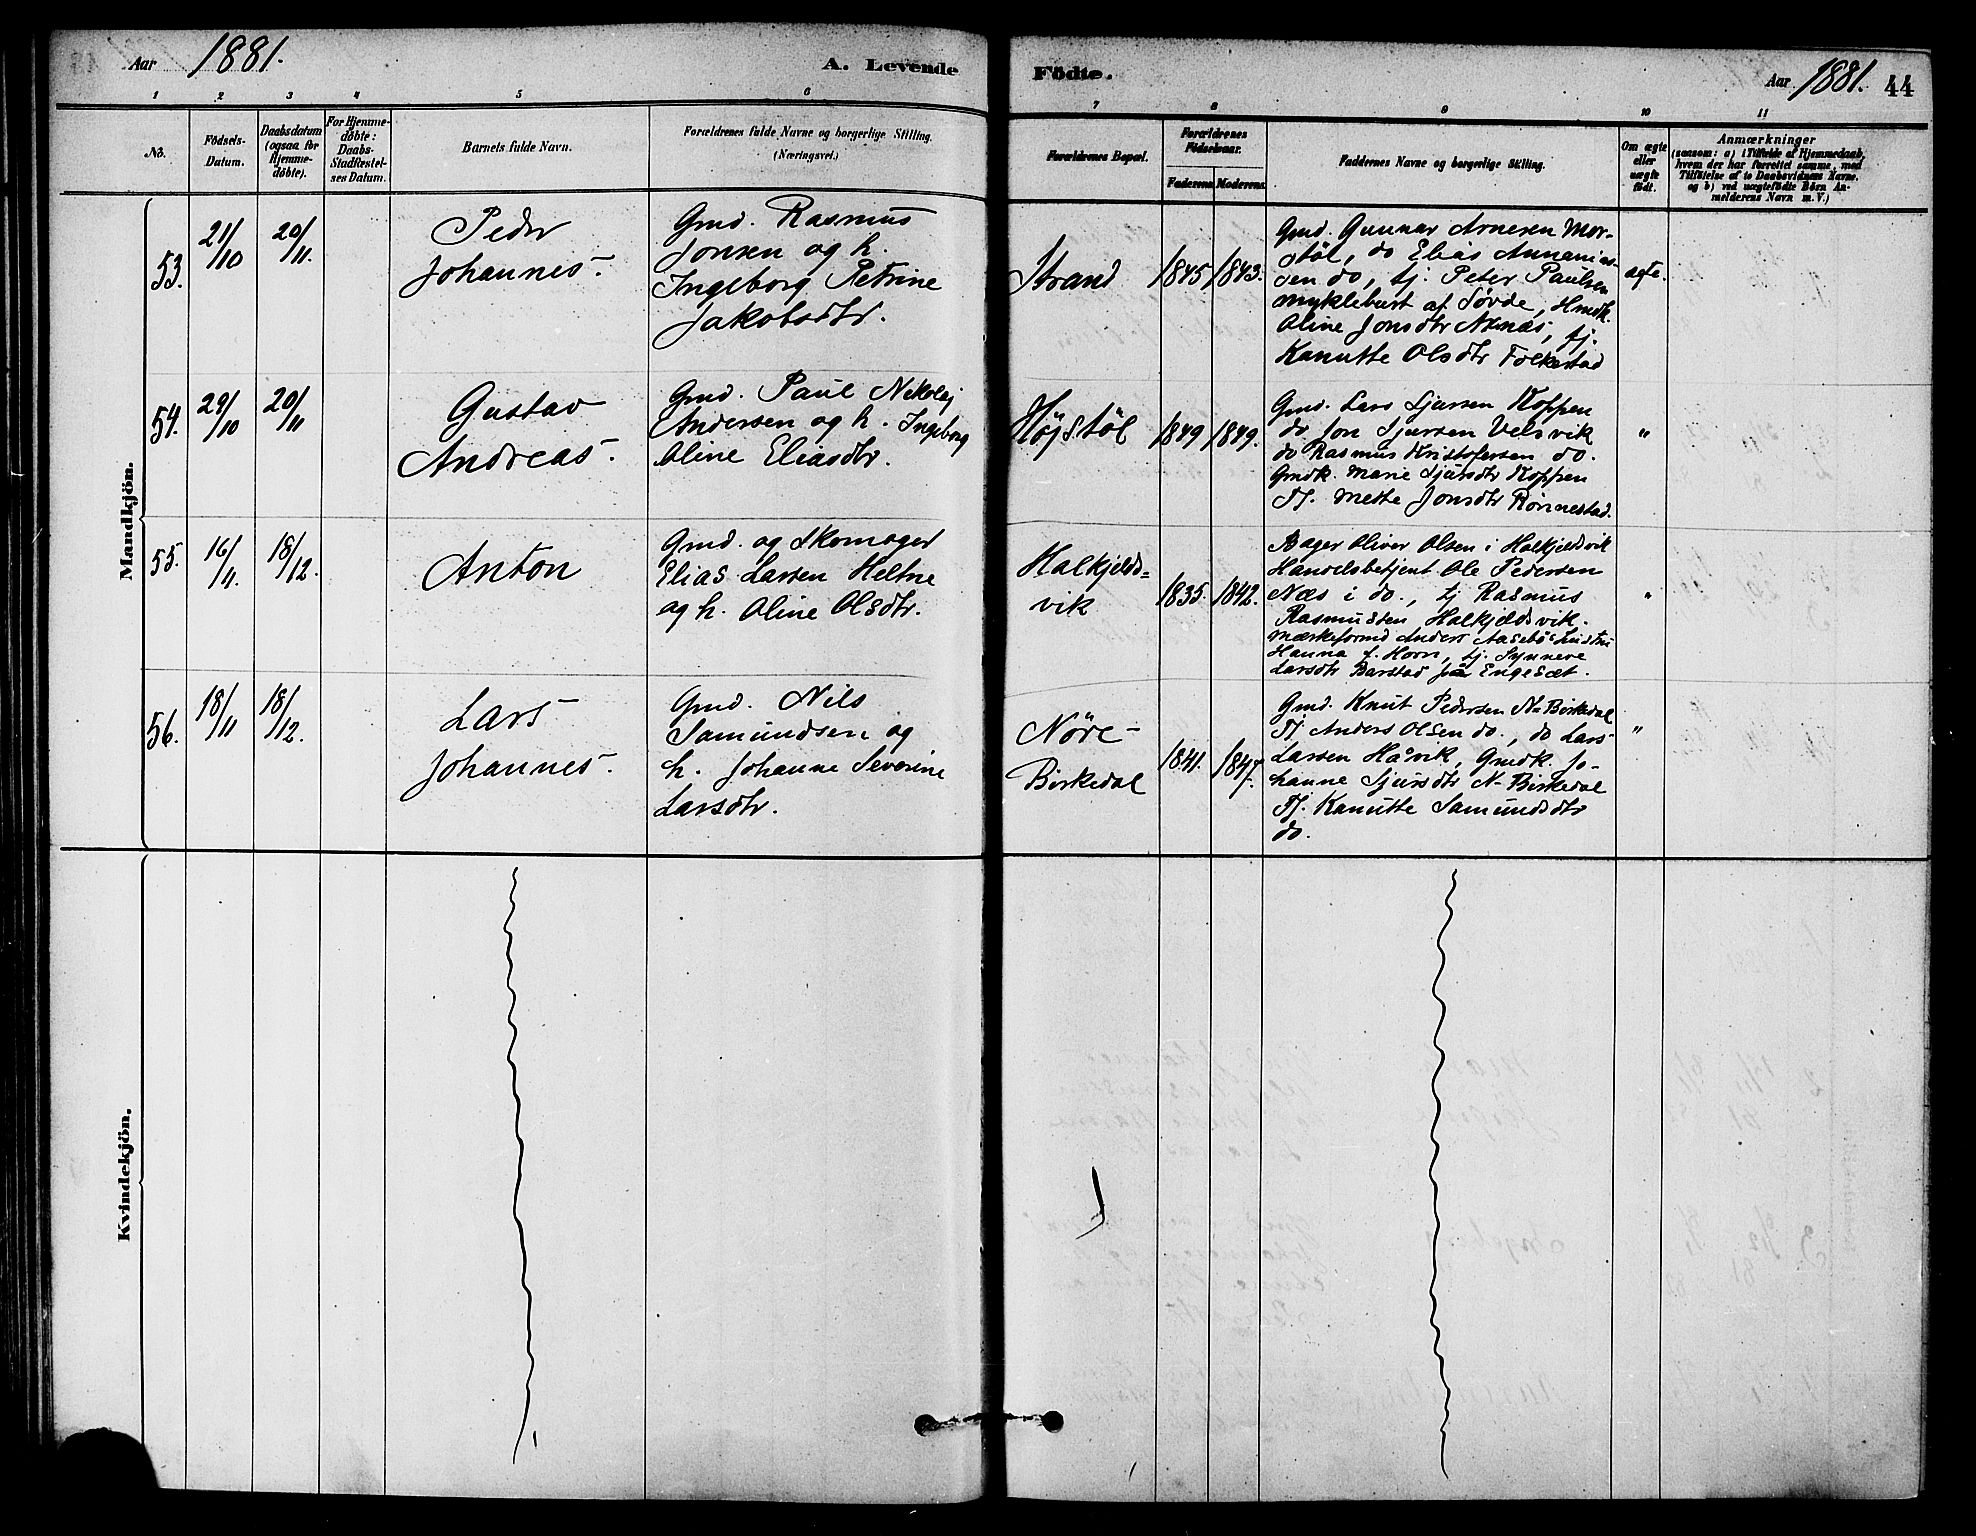 Aar 1881.
A. Levende
Födte.
Aar 1881. 44
1 2 3 4 5 6
7 8 9 10 11
No.
Födsels-
Datum.
Daabsdatum
(ogsaa for
Hjemme-
döbte).
For Hjemme-
döbte:
Daabs-
Stadfæstel-
ses Datum.
Barnets fulde Navn.
Forældrenes fulde Navne og borgerlige Stilling.
(Næringsvei.)
Forældrenes Bopæl.
Forældrenes
Födselsaar.
Faderens
Moderens
Faddernes Navne og borgerlige Stilling.
Om ægte
eller
uægte
födt.
Anmærkninger
(saasom: a) i Tilfælde af Hjemmedaab,
hvem der har forrettet samme, med
Tilföielse af to Daabsvidners Navne,
og b) ved uægtefödte Börn An-
melderens Navn m. V.)
Mandkjön.
53.
21/10
20/11.
Peder
Johannes.
Gmd. Rasmus
Jonsen og h.
Ingeborg Petrine
Jakobsdtr.
Strand
1845
1843.
Gmd. Gunnar Arnesen Mor-
støl, do Elias Annanias-
sen do, tj. Peter Paulsen
Myklebust af Søvde, Hmdk.
Oline Jonsdtr Asnæs, tj.
Kanutte Olsdtr Folkestad
ægte.
54.
29/10
20/11
Gustav
Andreas.
Gmd. Paul Nekolaj
Andersen og h. Ingeborg
Oline Eliasdtr.
Højstøl
1849
1849.
Gmd. Lars Sjursen Koppen
do Jon Sjursen Velsvik
do Rasmus Kristofersen do.
Gmdk. Marie Sjursdtr Koppen
Tj. Mette Jonsdtr Rønnestad.
"
55.
16/4.
18/12.
Anton
Gmd. og Skomager
Elias Larsen Heltne
og h. Oline Olsdtr.
Halkjelds=
vik
1835.
1842.
Bager Oliver Olsen i Halkjeldsvik
Handelsbetjent Ole Pedersen
Næs i do., tj Rasmus
Rasmussen Halkjeldsvik.
Anders Aasebøs hustru
Hanna f. Horn, tj. Synneve
Larsdtr Barstad Engesæt.
"
56.
18/11
18/12.
Lars
Johannes.
Gmd. Nils
Samundsen og
h. Johanne Severine
Larsdtr.
Nøre-
Birkedal
1841.
1847.
Gmd. Knut Pedersen N-Birkedal
Tj. Anders Olsen do., do Lars
Larsen Håvik, Gmdk. Jo-
hanne Sjursdtr N-Birkedal
Tj. Kanutte Samundsdtr
do.
"
Kvindekjön.